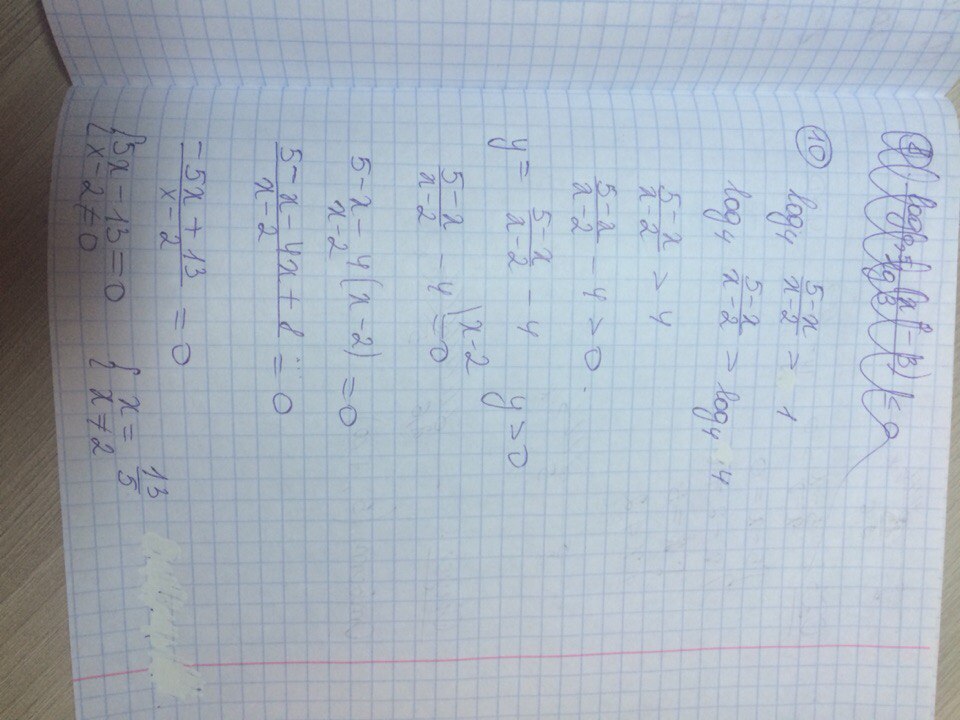 ⑩ log₄ (5-x)/(x-2) > 1
log₄ (5-x)/(x-2) > log₄ 4
(5-x)/(x-2) > 4
(5-x)/(x-2) - 4 > 0.
y = (5-x)/(x-2) - 4 y > 0
(5-x)/(x-2) - 4 \x-2 = 0
(5-x-4(x-2))/(x-2) = 0
(5-x-4x+8)/(x-2) = 0
(-5x+13)/(x-2) = 0
{5x-13=0 {x = 13/5
{x-2≠0 {x≠2